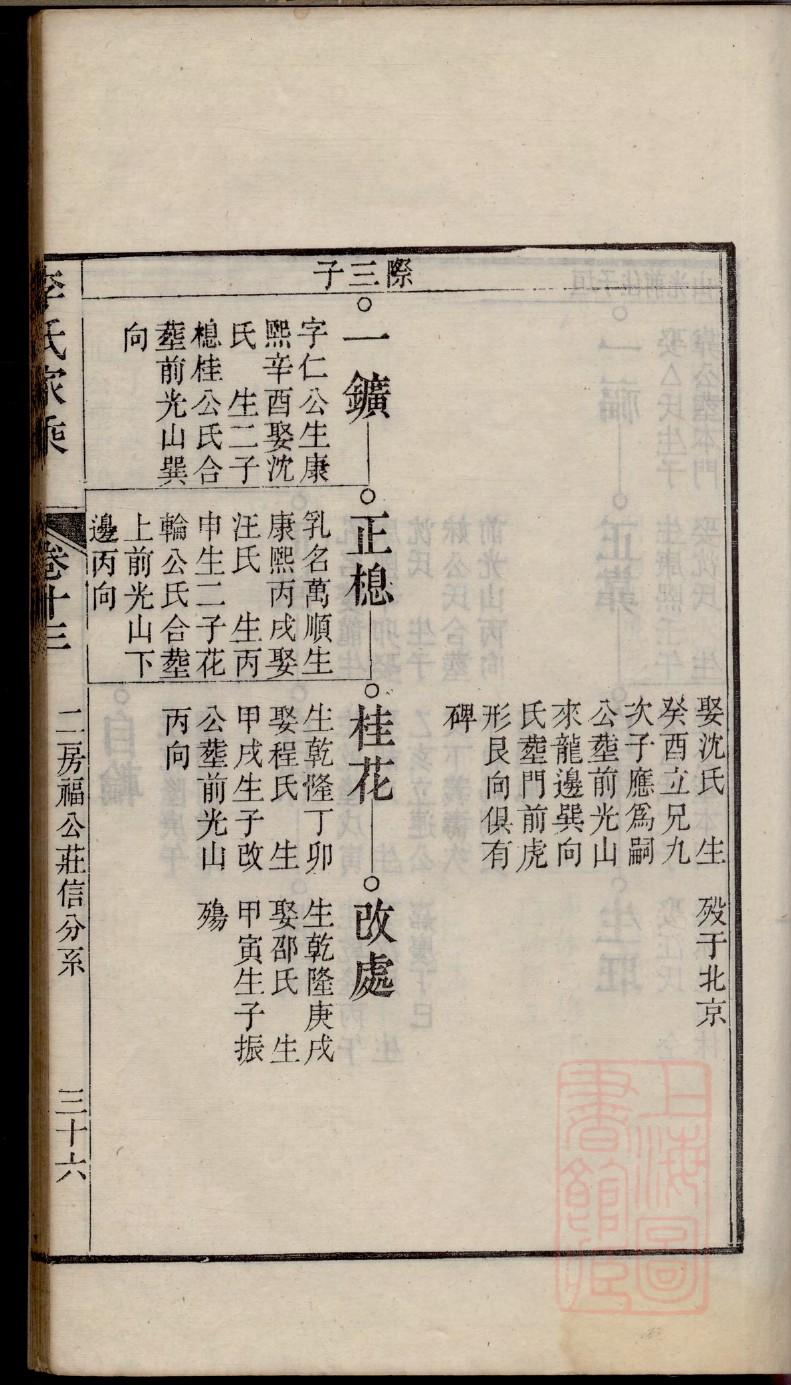 娶沈氏　生
癸酉立兄九
次子應爲嗣
公塟前光山
來龍邊巽向
氏塟門前虎
形艮向俱有
碑
歿于北京
際三子
一鑛
字仁公生康
熙辛酉娶沈
氏　生二子
樬桂公氏合
塟前光山巽
向
正樬
乳名萬順生
康熙丙戌娶
汪氏　生丙
申生二子花
輪公氏合塟
上前光山下
邊丙向
桂花
生乾隆丁卯
娶程氏　生
甲戌生子改
公塟前光山
丙向
改處
生乾隆庚戌
娶邵氏　生
甲寅生子振
殤
李氏家乘
卷十三
二房福公莊信分系
三十六
上海圖
書館藏